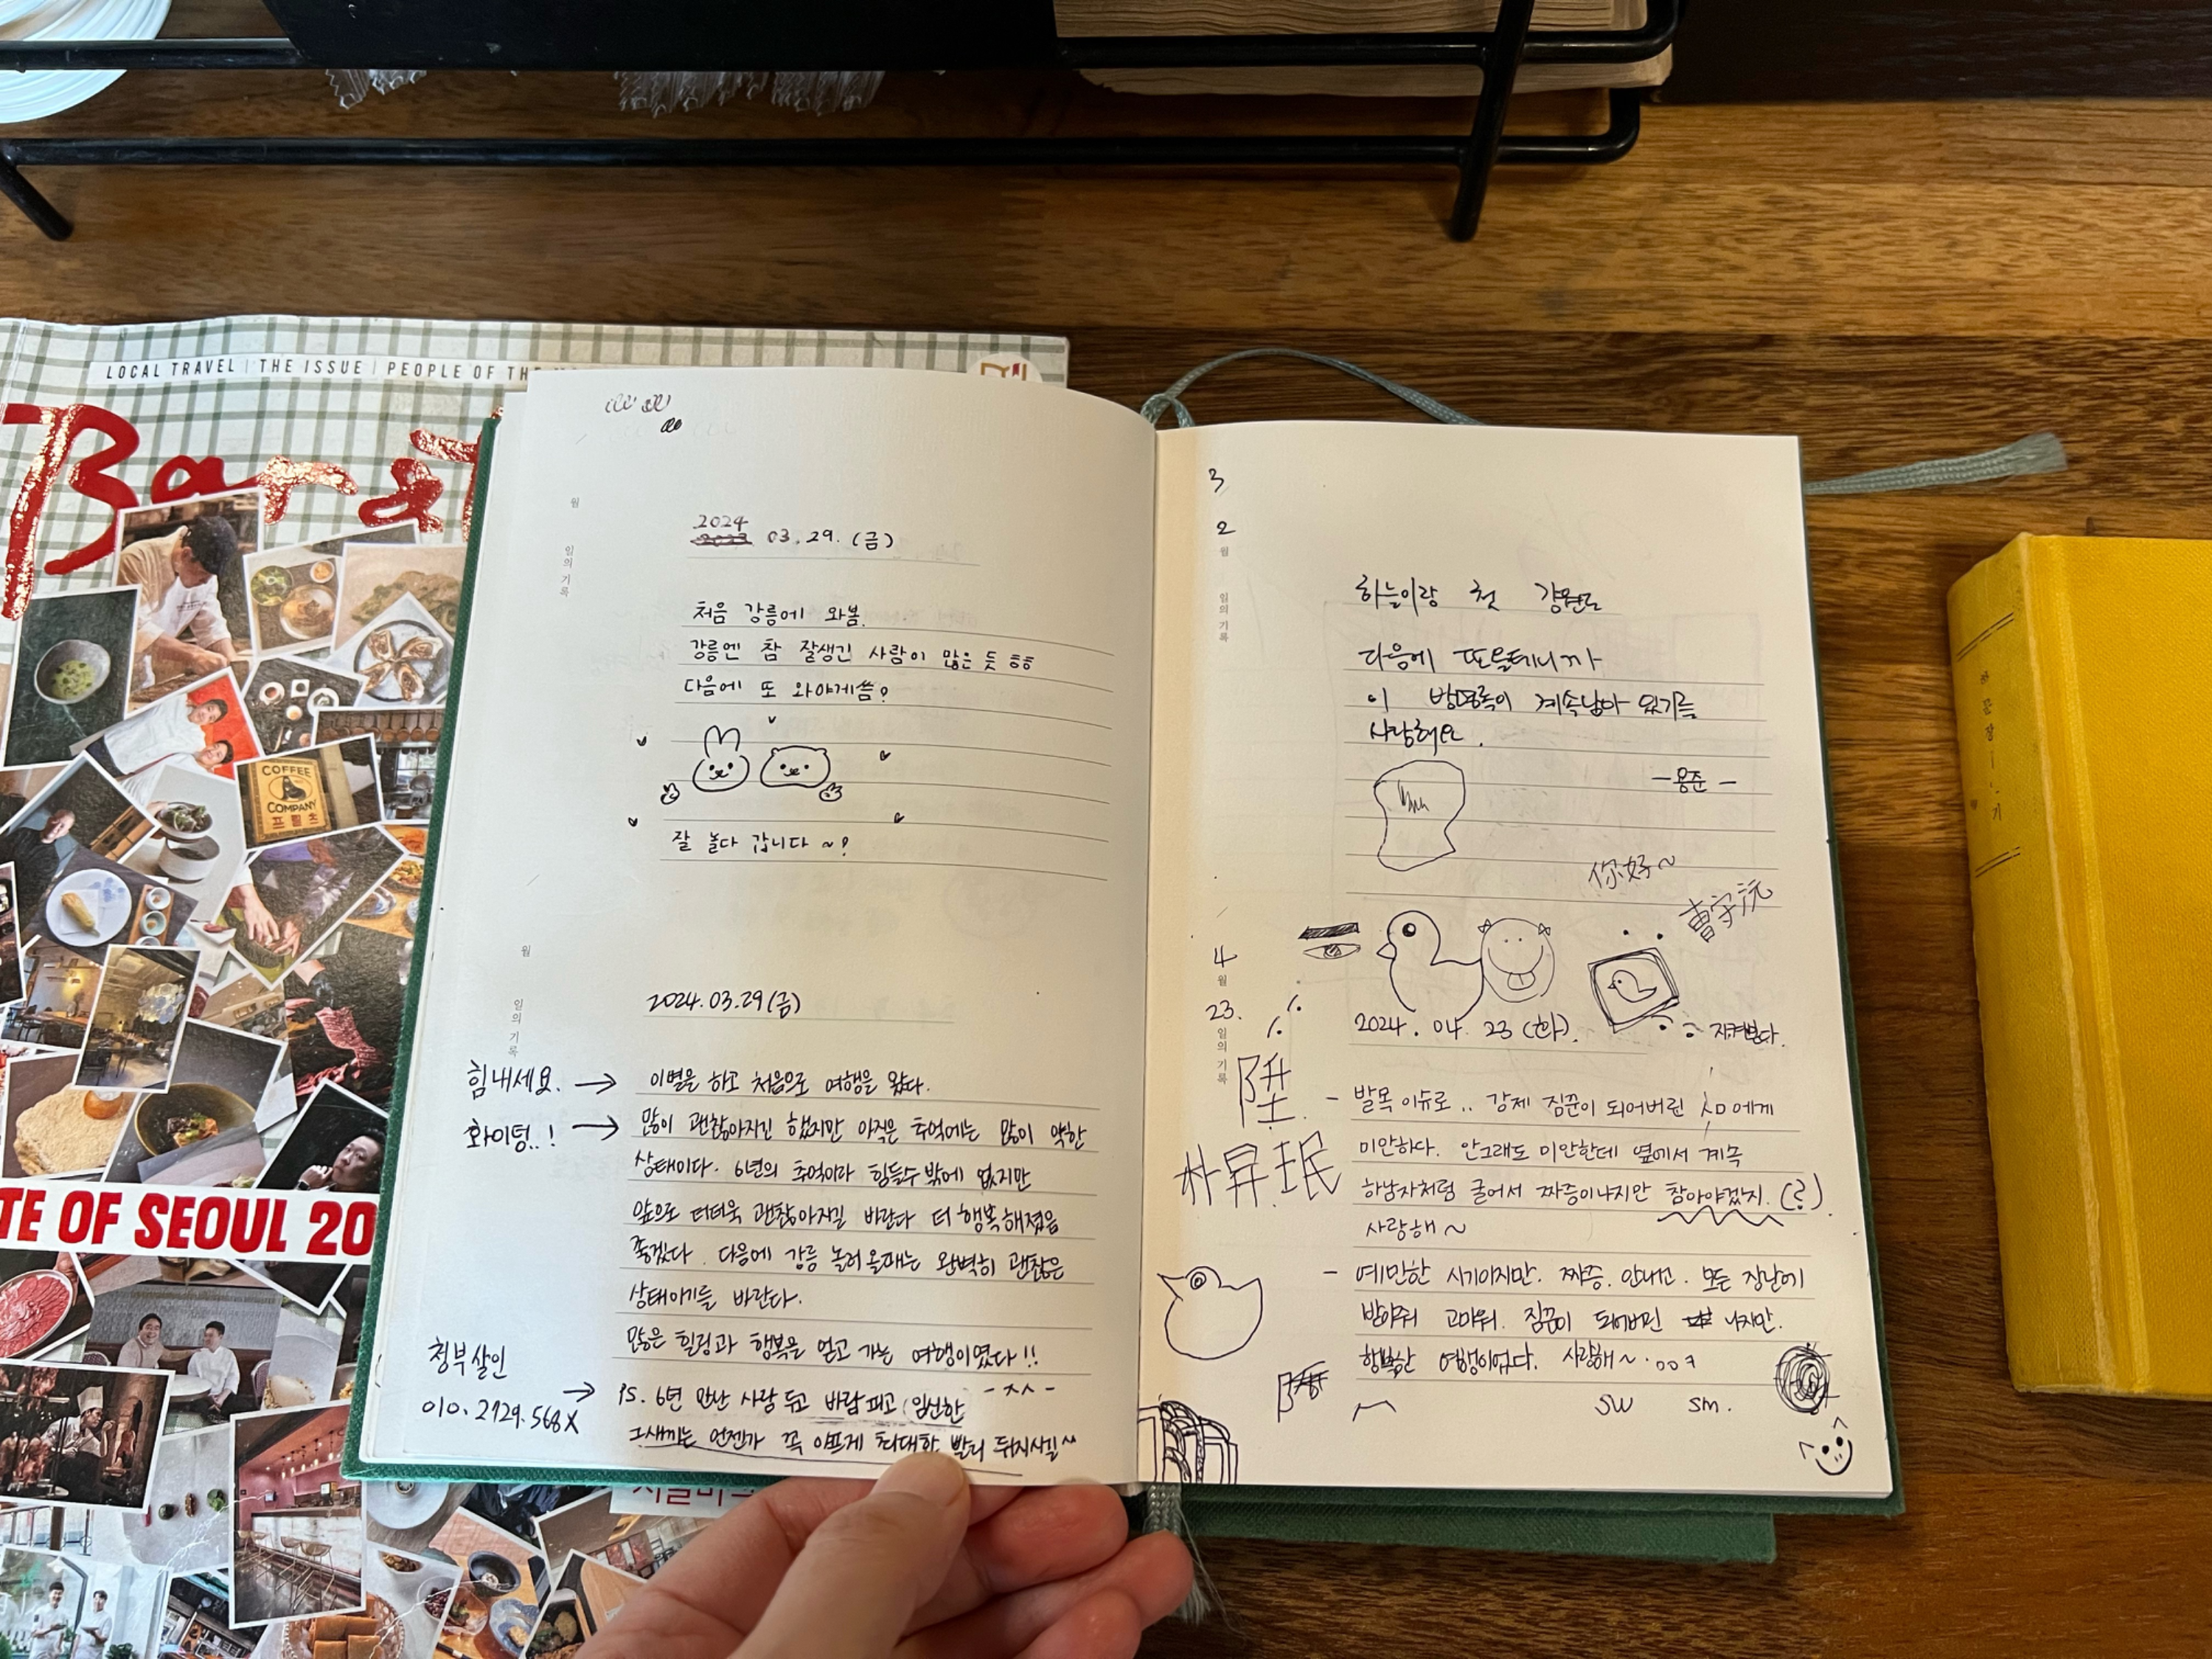 LOCAL TRAVEL | THE ISSUE | PEOPLE OF THE
COFFEE
COMPANY
프릳츠
TE OF SEOUL 20
월
일의 기록
2024
03.29.(금)
처음 강릉에 와봄.
강릉엔 참 잘생긴 사람이 많은 듯 ㅎㅎ
다음에 또 와야게씀?
잘 놀다 갑니다 ~!
월
일의 기록
2024.03.29(금)
힘내세요. → 이별을 하고 처음으로 여행을 왔다.
화이팅..! → 많이 괜찮아지긴 했지만 아직은 추억에는 많이 약한
상태이다. 6년의 추억이라 힘들수밖에 없지만
앞으로 더더욱 괜찮아지길 바란다 더 행복해졌음
좋겠다. 다음에 강릉 놀러올때는 완벽히 괜찮은
상태이기를 바란다.
많은 힐링과 행복을 얻고 가는 여행이였다!!
청부살인
010.2729.568X
→ PS. 6년 만난 사람 두고 바람피고 (임신한 -ㅅㅅ-
그새끼는 언젠가 꼭 아프게 최대한 빨리 뒤지시길^^
3
2
월
일의 기록
하늘이랑 첫 강원도
다음에 또올테니까
이 방명록이 계속남아 있기를
사랑해요.
-용준-
你好~
4
월
23.
일의 기록
2024. 04. 23 (화).
지켜본다.
- 발목 이슈로.. 강제 짐꾼이 되어버린 에게
미안하다. 안그래도 미안한데 옆에서 계속
하남자처럼 굴어서 짜증이나지만 참아야겠지. (?).
사랑해~
朴昇珉
- 예민한 시기이지만. 짜증. 안내고. 모든 장난에
받아줘 고마워. 짐꾼이 되어버린 나지만.
행복한 여행이었다. 사랑해~
SW SM.
한 문장 일기